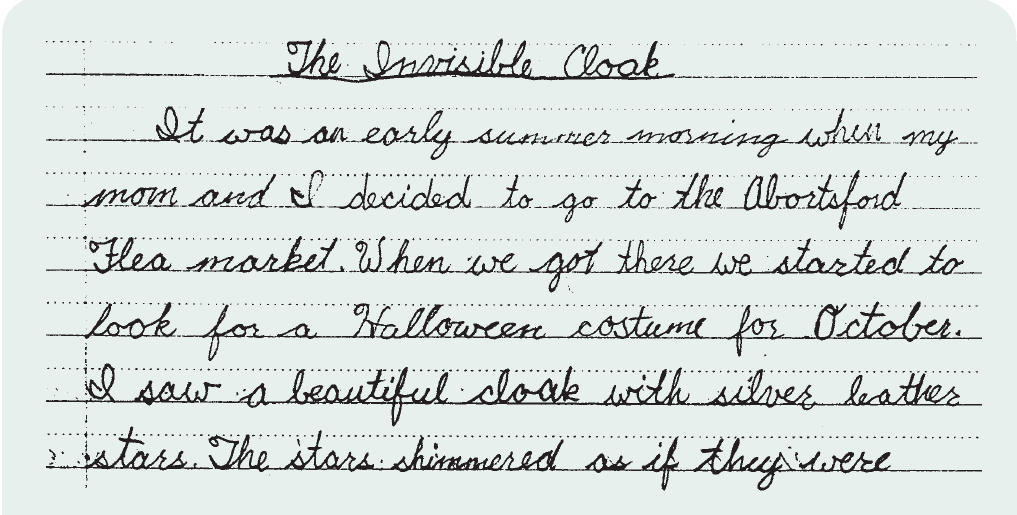 The Invisible Cloak
It was an early summer morning when my
mom and I decided to go to the Abortsford
Flea market. When we got there we started to
look for a Halloween costume for October.
I saw a beautiful cloak with silver leather
stars. The stars shimmered as if they were